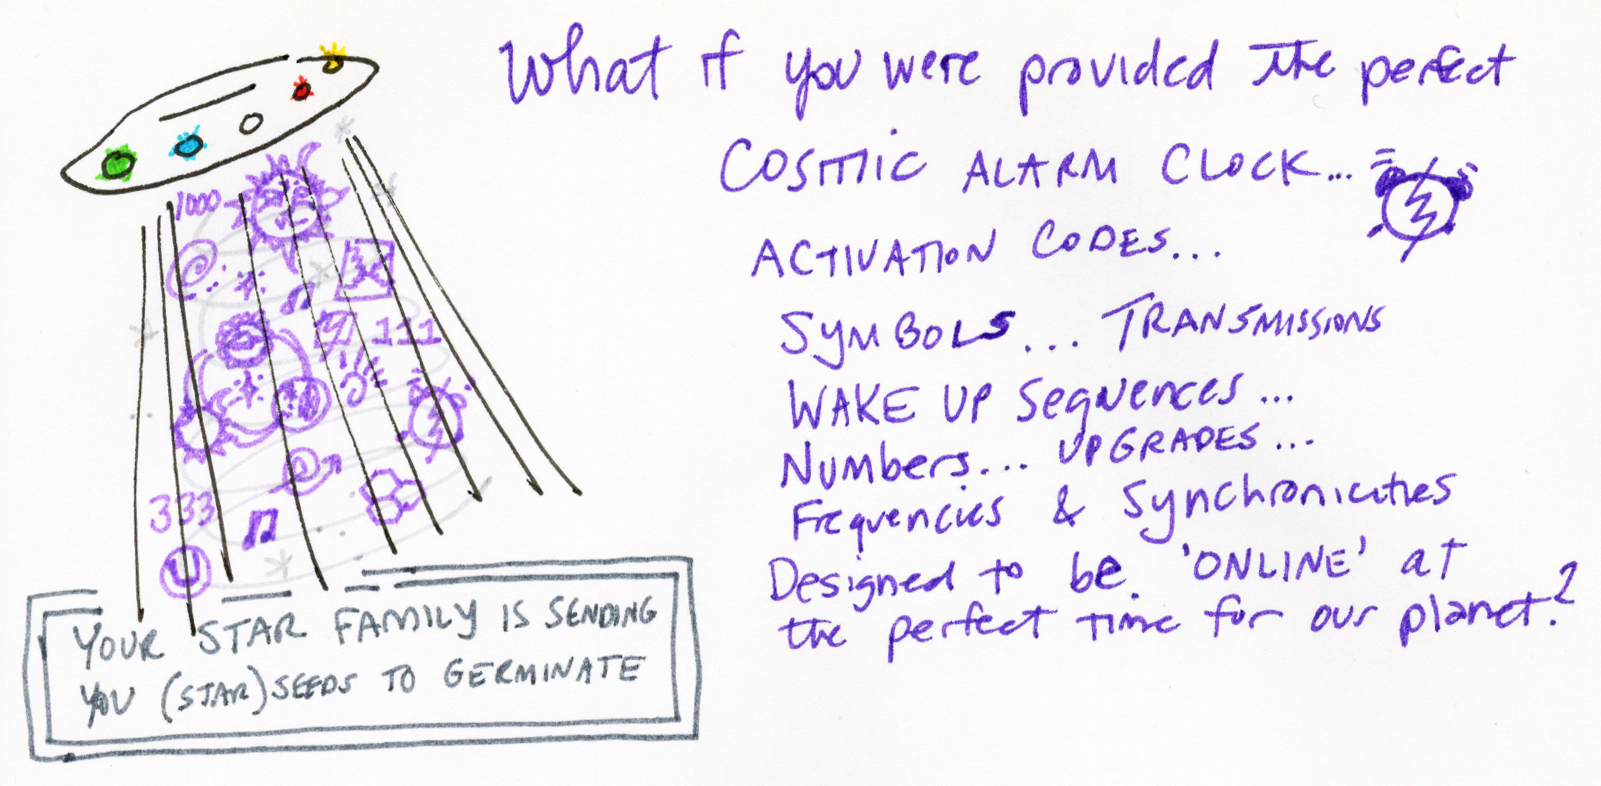 What if you were provided the perfect
COSMIC ALARM CLOCK...
ACTIVATION CODES...
SYMBOLS... TRANSMISSIONS
WAKE UP Sequences...
Numbers... UPGRADES...
Frequencies & Synchronicities
Designed to be 'ONLINE' at
the perfect time for our planet?
1000
111
333
U
YOUR STAR FAMILY IS SENDING
YOU (STAR)SEEDS TO GERMINATE